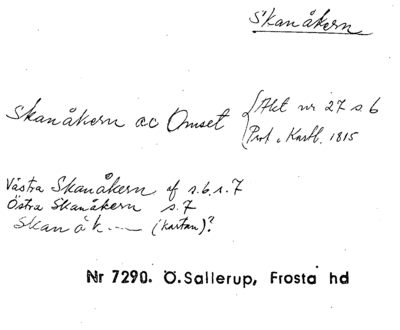 Skanåkern
Skanåkern ac Omset { Akt nr 27 s 6
Prot. o Kartb. 1815
Västra Skanåkern af s. 6. s. 7
Östra Skanåkern s. 7
Skan åk--- (kartan)?
Nr 7290. Ö.Sallerup, Frosta hd